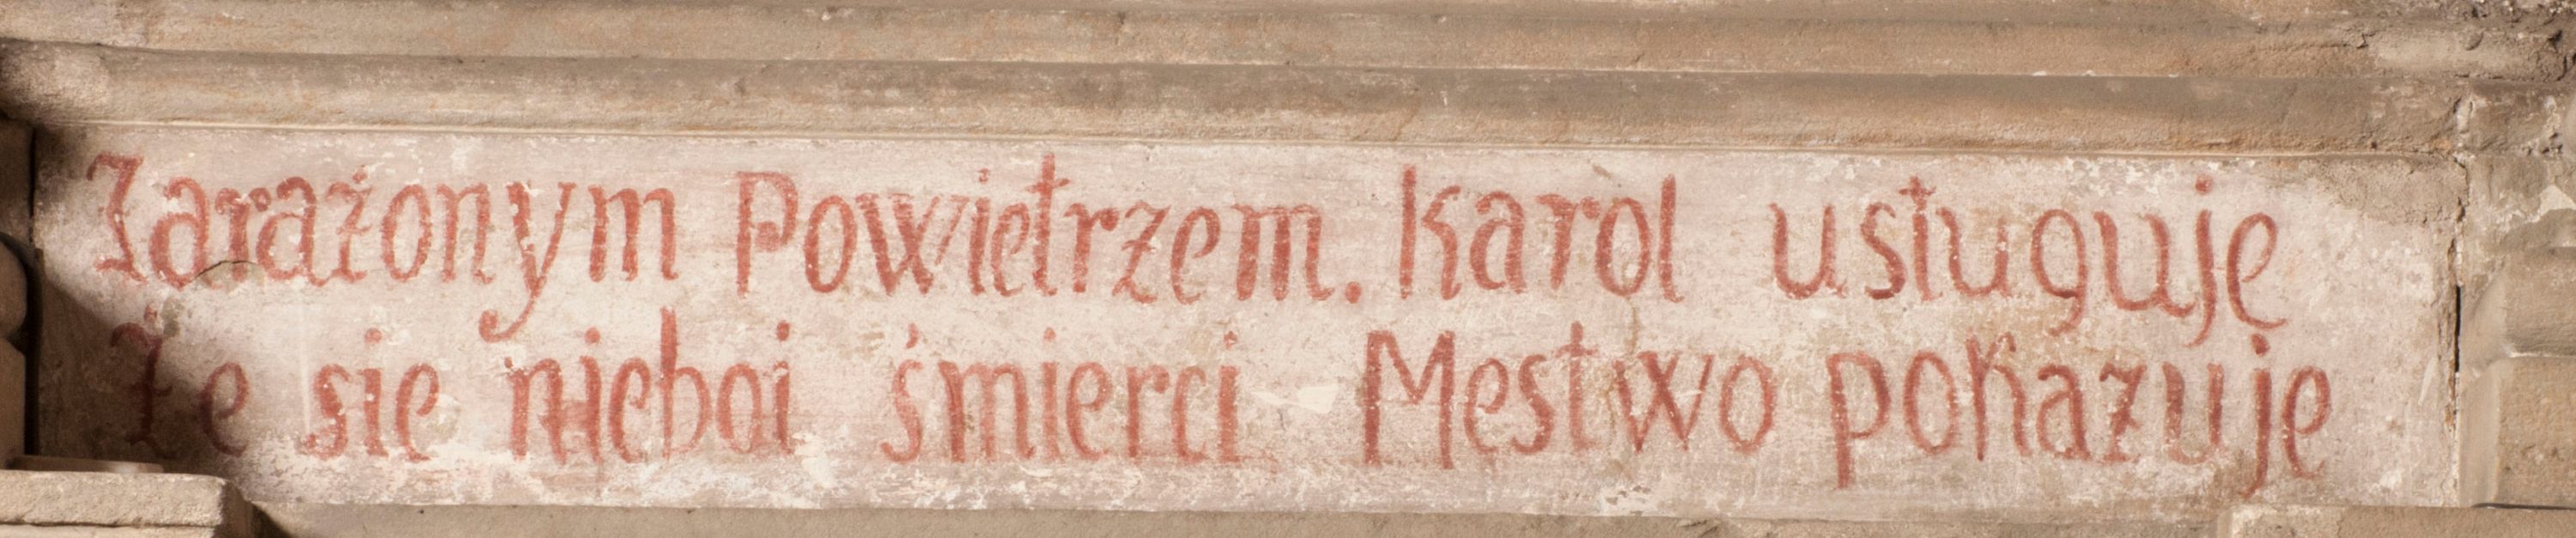 Zarażonym Powietrzem. Karol usługuję
Że się nieboi śmierci Mestwo pokazuję